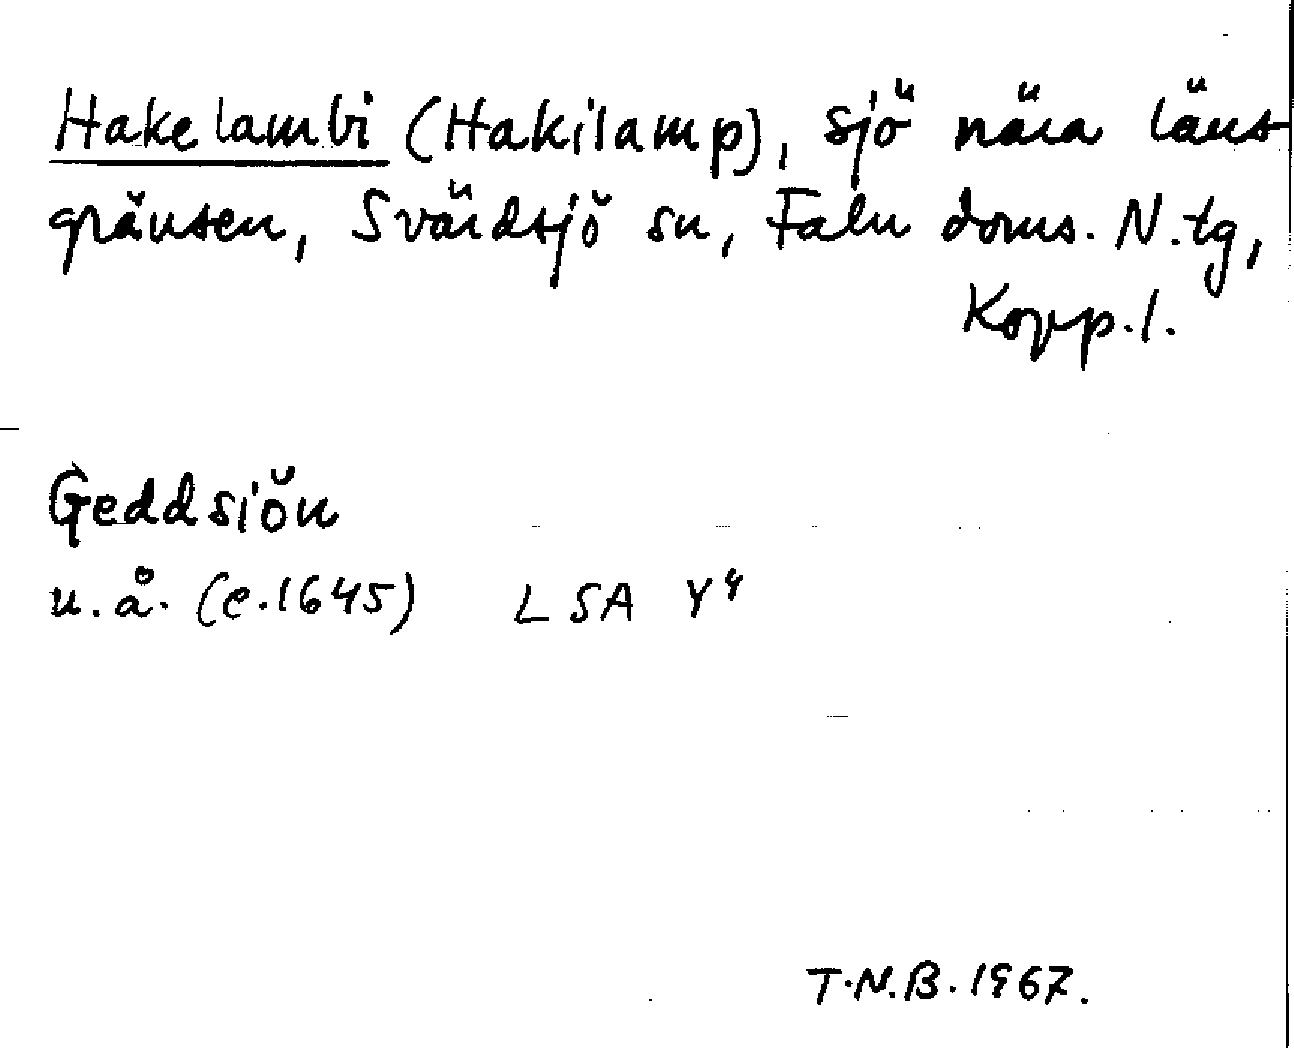 Hakelambi (Hakilamp), sjö nära läns
gränsen, Svärdsjö sn, Falu doms. N. tg,
Kopp. l.
Geddsiön
u. å. (c. 1645) LSA Y4
T.N.B. 1967.